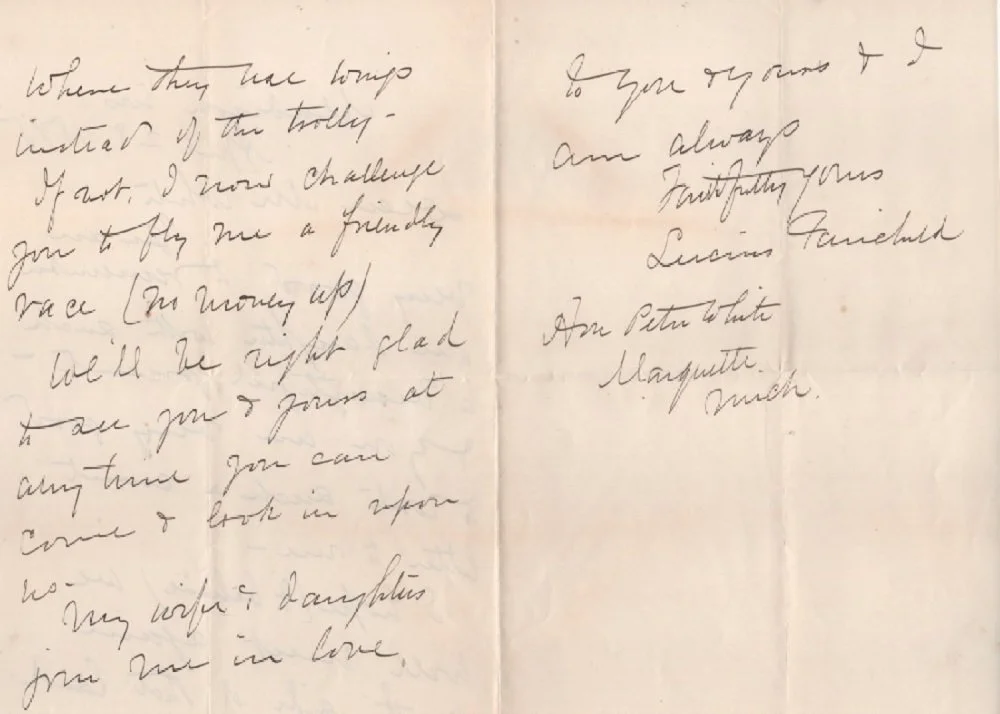 Where they use wings
instead of the trolly -
If not, I now challenge
you to fly me a friendly
race (no money up)
We'll be right glad
to see you & yours at
any time you can
come & look in upon
us-
My wife & daughters
join me in love,
to you & yours & I
am always
Faithfully yours
Lucius Fairchild
Hon Peter White
Marquette.
Mich.